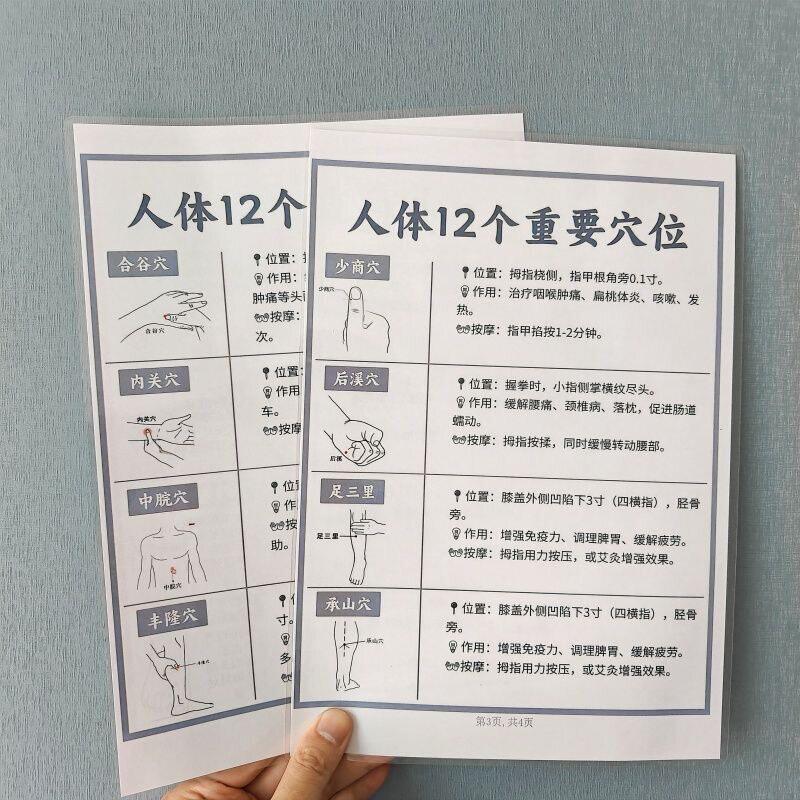 人体12个
合谷穴
合谷穴
位置：
作用：
肿痛等头
按摩：
次。
内关穴
内关穴
位置：
作用
车。
按摩
中脘穴
中脘穴
位
作
按
助。
丰隆穴
丰隆穴
位
寸。
多
人体12个重要穴位
少商穴
少商穴
位置：拇指桡侧，指甲根角旁0.1寸。
作用：治疗咽喉肿痛、扁桃体炎、咳嗽、发
热。
按摩：指甲掐按1-2分钟。
后溪穴
后溪
位置：握拳时，小指侧掌横纹尽头。
作用：缓解腰痛、颈椎病、落枕，促进肠道
蠕动。
按摩：拇指按揉，同时缓慢转动腰部。
足三里
足三里
位置：膝盖外侧凹陷下3寸（四横指），胫骨
旁。
作用：增强免疫力、调理脾胃、缓解疲劳。
按摩：拇指用力按压，或艾灸增强效果。
承山穴
承山穴
位置：膝盖外侧凹陷下3寸（四横指），胫骨
旁。
作用：增强免疫力、调理脾胃、缓解疲劳。
按摩：拇指用力按压，或艾灸增强效果。
第3页, 共4页